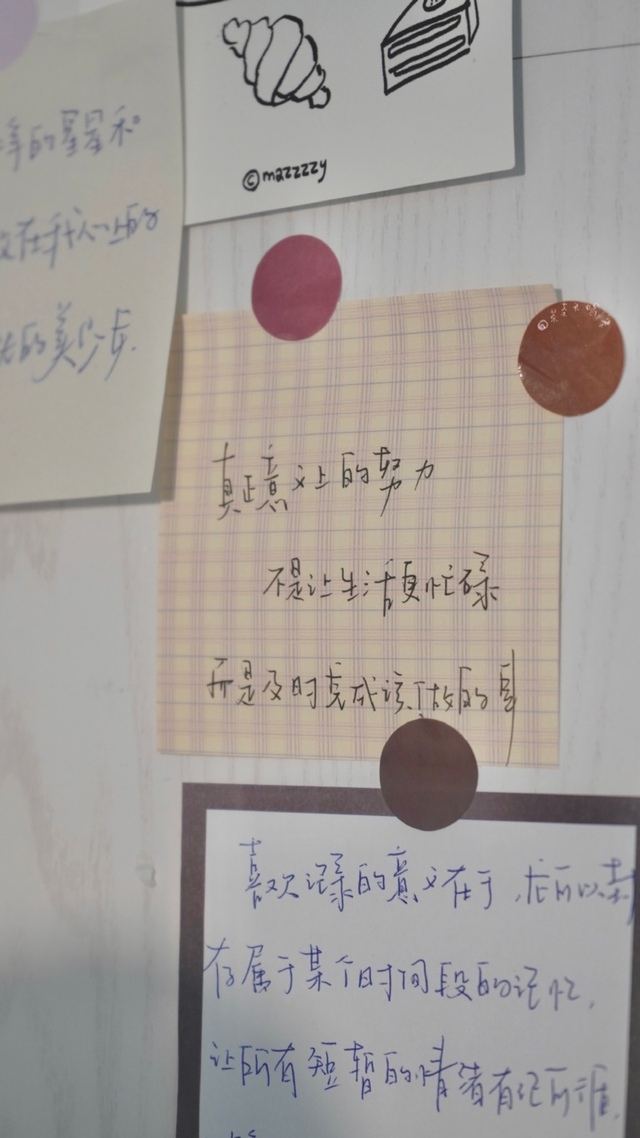 ©mazzzzy
的星星和
在我心上的
的美少女.
真正意义上的努力
不是让生活更忙碌
而是及时完成该做的事
喜欢记录的意义在于,
存属于某个时间段的记忆,
让所有短暂的情绪有记所